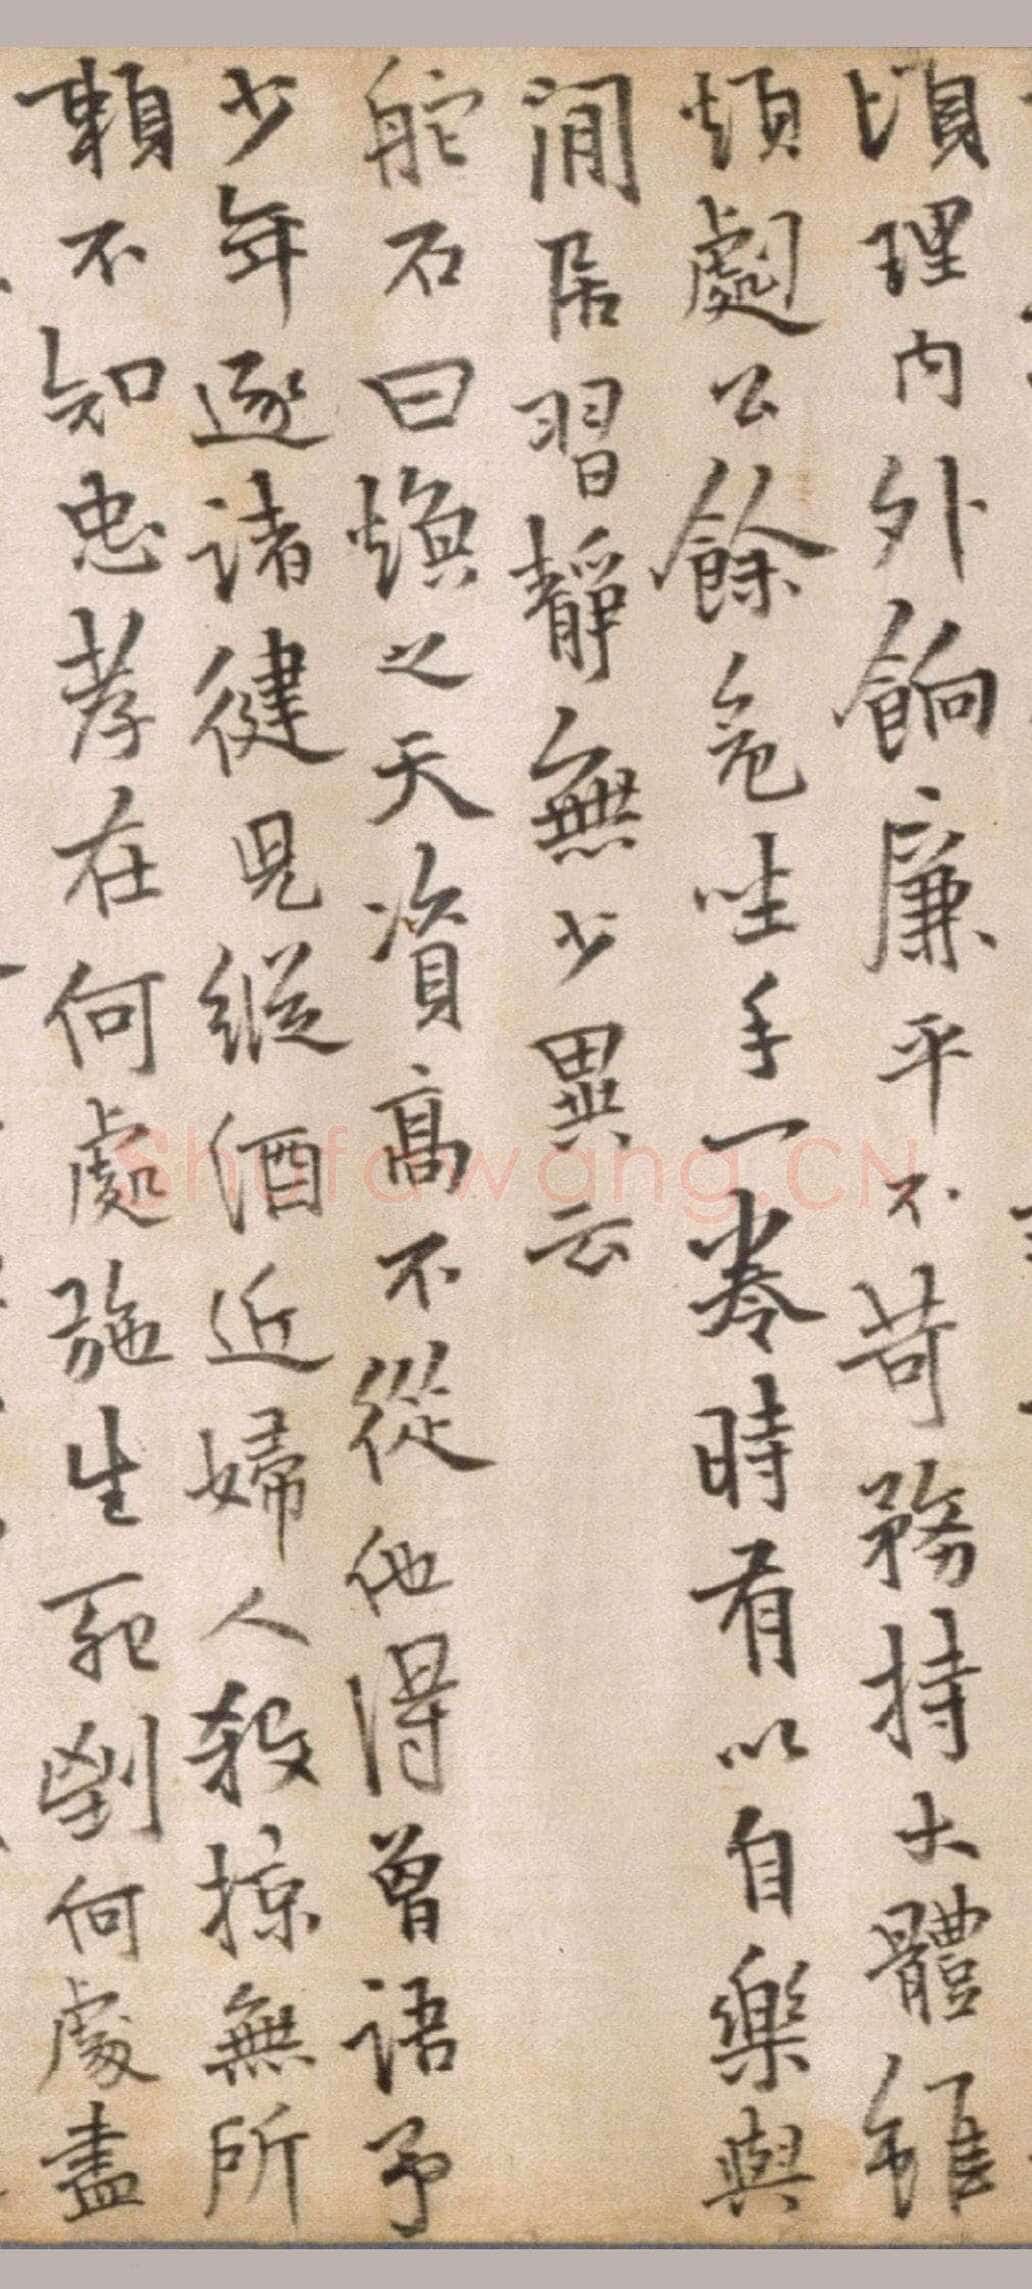 須理內外餉廉平不苛務持大體雖
煩劇公餘危坐手一卷時有以自樂與
閒居習靜無少異云
舵石曰煥之天資高不從他得曾語予
少年逐諸健兒縱酒近婦人殺掠無所
賴不知忠孝在何處施生死劉何處盡
Shufawang.CN